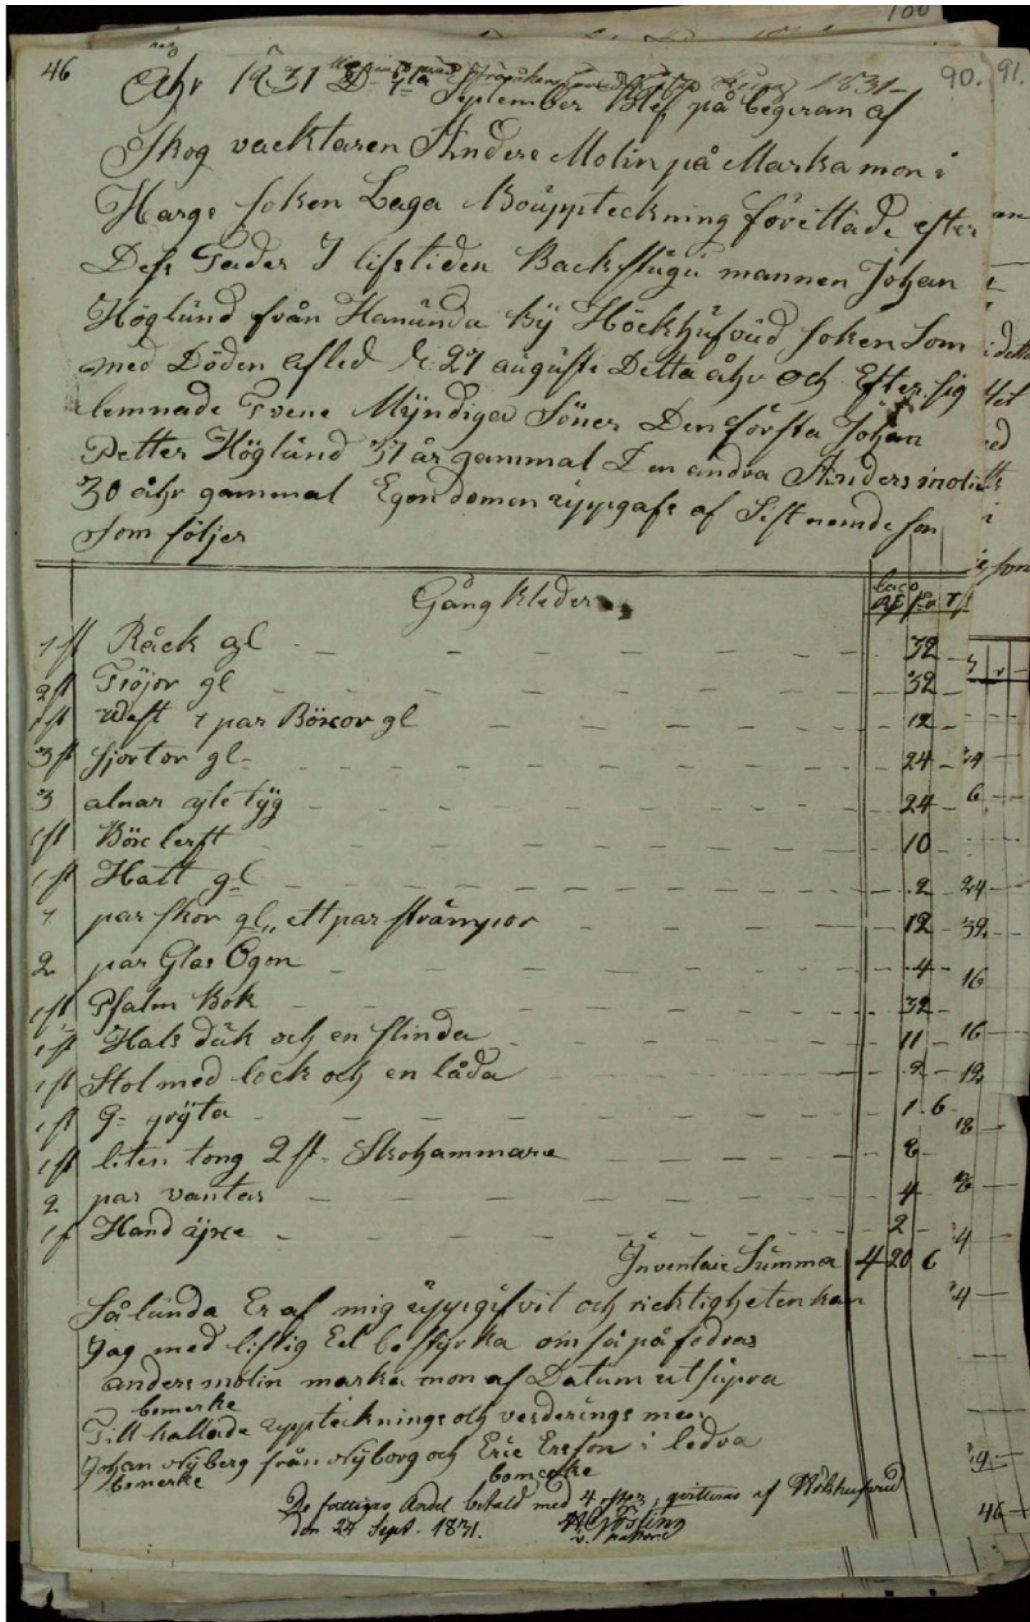 46
90. 91.
Åhr 1831 D September Blef på begiran af
Skog vacktaren Anders Molin på Marka mon i
Hargs soken Laga Bouppteckning förrittade efter
Dess Fader I lifstiden Backstugu mannen Johan
Höglund från Hanunda By Höckhufvud soken Som
med Döden afled d. 27 auguste Detta åhr och Efter sig
lemnade Tvene Myndiga Söner Den första Johan
Petter Höglund 37 år gammal Den andra Anders molin
30 åhr gammal Egendomen uppgafs af Sist nemde son
som följer
Gång kleder
1 st Råck gl 32
2 st Tröjor gl 32
1 st Wäst 1 par Böxor gl 12
3 st sjortor gl 24
3 alnar ylle tyg 24
1 st Böx lerft 10
1 st Hatt gl 2
1 par skor gl ett par strumpor 12
2 par Glas Ögon 4
1 st Psalm Bok 32
1 st Hals duk och en flinda 11
1 st Stol med lock och en låda 2
1 st G- gryta 1 6
1 st liten tong 2 st Skohammare 8
2 par vantar 4
1 st Hand yxe 2
Inventarie Summa 4 20 6
Sålunda Er af mig uppgifvit och ricktigheten kan
Jag med liflig Ed bestyrka om så på fodras
anders molin marka mon af Datum ut supra
bomerke
Till kallade upptecknings och verderings men
Johan Nyberg från Nyborg och Eric Ersson i ledra
bomerke bomerke
De fattigas Andel betald med 4 qvitteras af Hökhufvud
den 24 Sept. 1831.